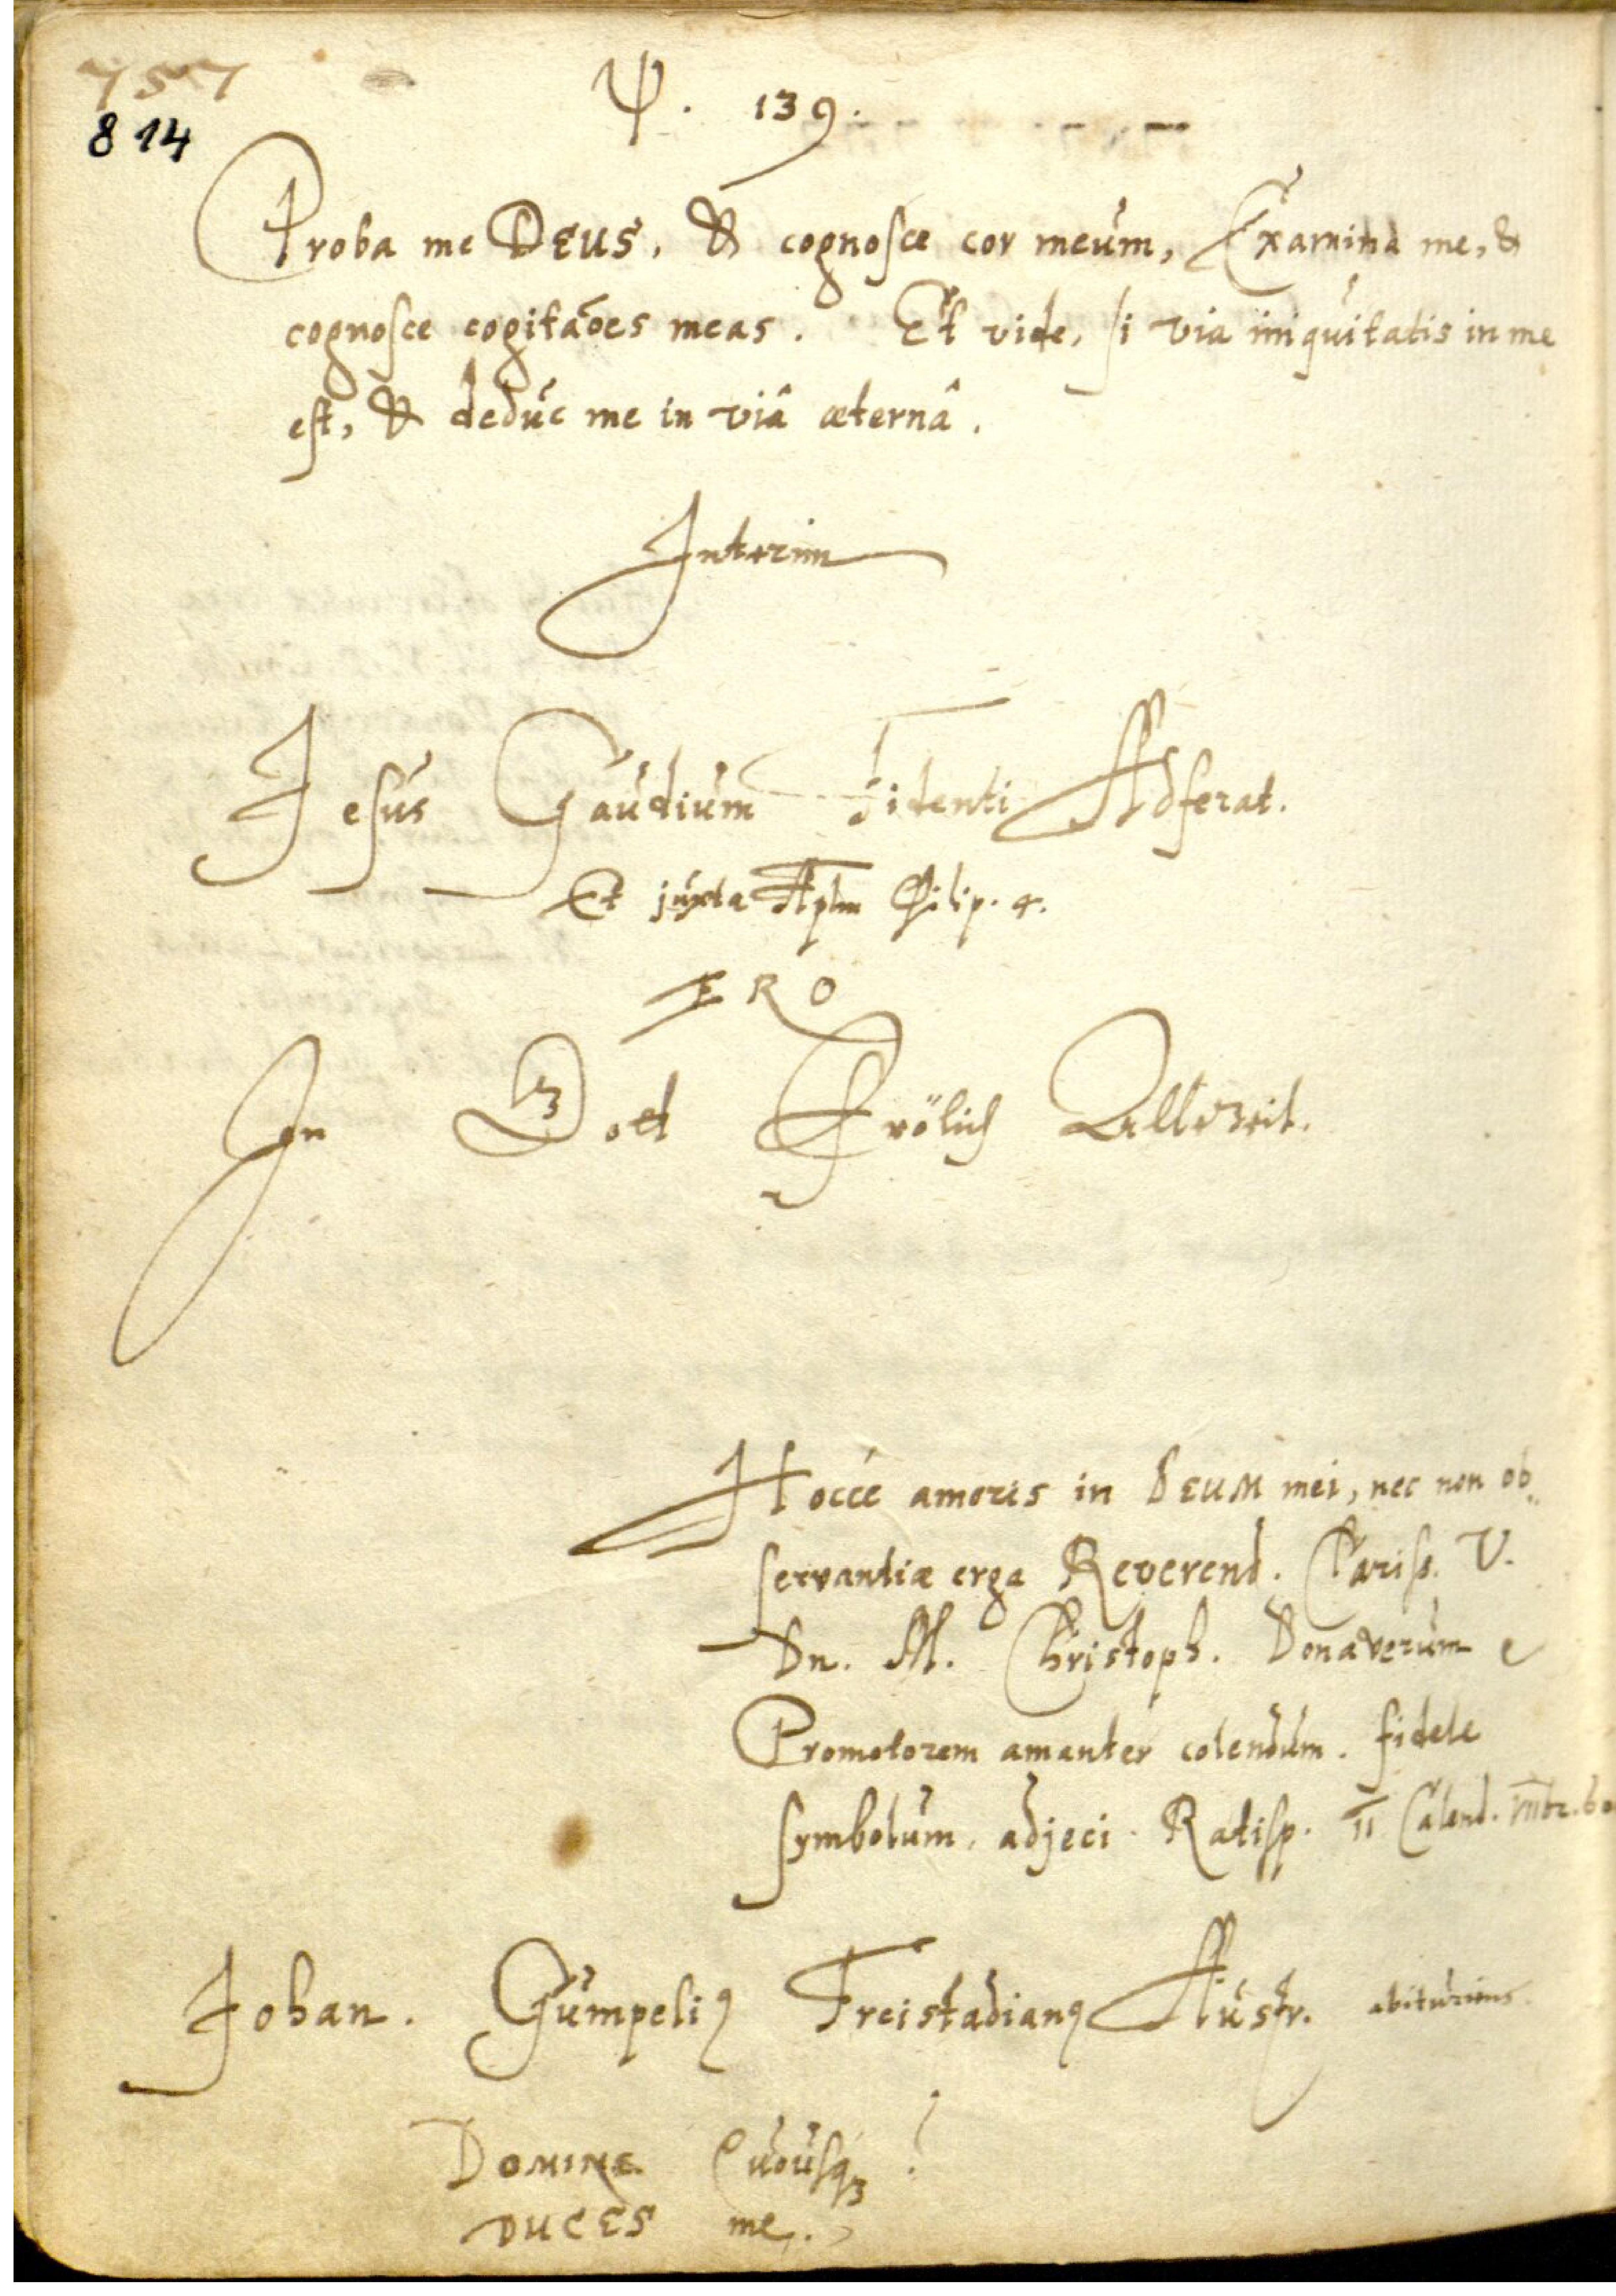 757
814
Ψ. 139.
Proba me DEUS, & cognosce cor meum, Examina me, &
cognosce cogitaões meas. Et vide, si via iniquitatis in me
est, & deduc me in viâ æternâ.
Interim
Jesus Gaudium Fidenti Adferat.
Et juxta Aplm Philip. 4.
ERO
In Gott Frölich Allezeit.
Hocce amoris in DEUM mei, nec non ob
servantiæ erga Reverend. Clariss. V.
Dn. M. Christoph. Donaverum
Promotorem amanter colendum. fidele
symbolum. adjeci. Ratisp. II Calend.
Johan. Gumpeliꝯ Freistadianꝯ Austr. abituriens.
DOMINE Quousqꝫ?
DUCES me.